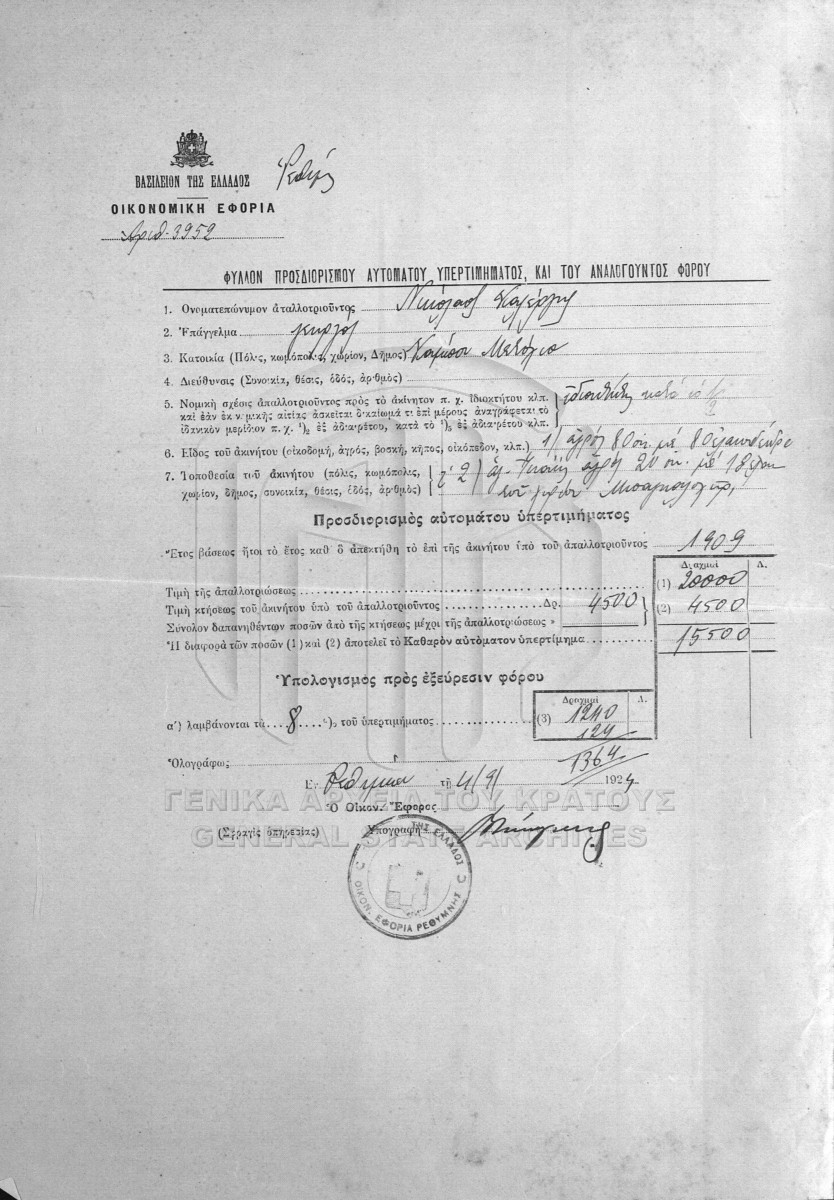 ΒΑΣΙΛΕΙΟΝ ΤΗΣ ΕΛΛΑΔΟΣ
ΟΙΚΟΝΟΜΙΚΗ ΕΦΟΡΙΑ
Αριθ. 3952
ΦΥΛΛΟΝ ΠΡΟΣΔΙΟΡΙΣΜΟΥ ΑΥΤΟΜΑΤΟΥ ΥΠΕΡΤΙΜΗΜΑΤΟΣ, ΚΑΙ ΤΟΥ ΑΝΑΛΟΓΟΥΝΤΟΣ ΦΟΡΟΥ
1. Ὀνοματεπώνυμον ἀπαλλοτριοῦντος Νικόλαος
2. Ἐπάγγελμα
3. Κατοικία (Πόλις, κωμόπολις, χωρίον, Δῆμος) Μετόχια
4. Διεύθυνσις (Συνοικία, θέσις, ὁδός, ἀριθμὸς)
5. Νομικὴ σχέσις ἀπαλλοτριοῦντος πρὸς τὸ ἀκίνητον π. χ. ἰδιοκτήτου κλπ.
καὶ ἐὰν ἐκ νομικῆς αἰτίας ἀσκεῖται δικαίωμά τι ἐπὶ μέρους ἀναγράφεται τὸ
ἰδανικὸν μερίδιον π. χ. ½ ἐξ ἀδιαιρέτου, κατὰ τὸ ½ ἐξ ἀδιαιρέτου κλπ.
6. Εἶδος τοῦ ἀκινήτου (οἰκοδομή, ἀγρός, βοσκή, κῆπος, οἰκόπεδον, κλπ.) 1/ ἀγρὸς
7. Τοποθεσία τοῦ ἀκινήτου (πόλις, κωμόπολις,
χωρίον, δῆμος, συνοικία, θέσις, ὁδός, ἀριθμὸς)
Προσδιορισμὸς αὐτομάτου ὑπερτιμήματος
Ἔτος βάσεως ἤτοι τὸ ἔτος καθ᾽ ὃ ἀπεκτήθη τὸ ἐπὶ τῆς ἀκινήτου ὑπὸ τοῦ ἀπαλλοτριοῦντος 1909
Δραχμαί Λ.
Τιμὴ τῆς ἀπαλλοτριώσεως (1) 20000
Τιμὴ κτήσεως τοῦ ἀκινήτου ὑπὸ τοῦ ἀπαλλοτριοῦντος Δρ. 4500 (2) 4500
Σύνολον δαπανηθέντων ποσῶν ἀπὸ τῆς κτήσεως μέχρι τῆς ἀπαλλοτριώσεως »
Ἡ διαφορὰ τῶν ποσῶν (1) καὶ (2) ἀποτελεῖ τὸ Καθαρὸν αὐτόματον ὑπερτίμημα 15500
Ὑπολογισμὸς πρὸς ἐξεύρεσιν φόρου
Δραχμαί Λ.
α') λαμβάνονται τὰ 8 % τοῦ ὑπερτιμήματος (3) 1240
124
Ὁλογράφως 1364
Ἐν τῇ 4/9/ 1924
Ὁ Οἰκον. Ἔφορος
(Σφραγὶς ὑπηρεσίας) Ὑπογραφὴ
ΤΗΣ ΕΛΛΑΔΟΣ
ΟΙΚΟΝ. ΕΦΟΡΙΑ ΡΕΘΥΜΝΗΣ
ΓΕΝΙΚΑ ΑΡΧΕΙΑ ΤΟΥ ΚΡΑΤΟΥΣ
GENERAL STATE ARCHIVES